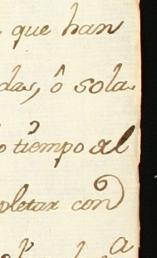 que han
das, ô sola
o tiempo al
pletar con